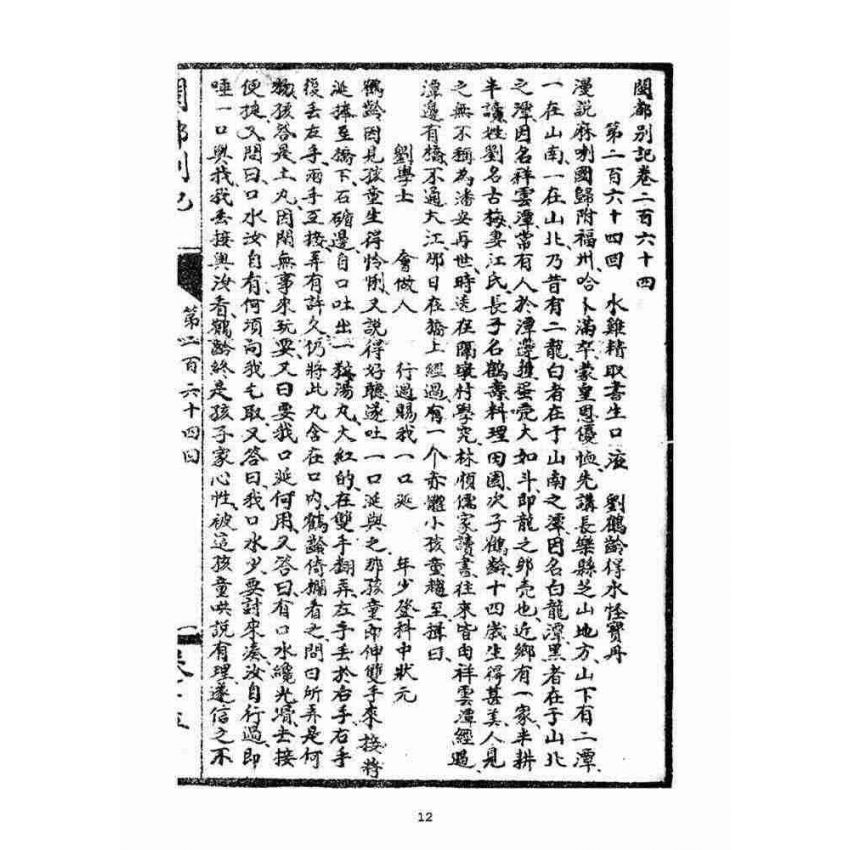 閩都別記卷二百六十四
第二百六十四回 水雞精取書生口液 劉鶴齡得水怪寶丹
漫說麻喇國歸附福州哈卜滿卒蒙皇恩優恤先講長樂縣芝山地方山下有二潭
一在山南一在山北乃昔有二龍白者在于山南之潭因名白龍潭黑者在于山北
之潭因名祥雲潭常有人於潭邊蛋壳大如斗即龍之卵壳也近鄉有一家半耕
半讀姓劉名古梅妻江氏長子名鶴壽料理田園次子鶴齡十四歲生得甚美人見
之無不稱為潘安再世時送在隔村學究林儒家讀書往來皆由祥雲潭經過
潭邊有橋不通大江那日在橋上經過有一个赤體小孩童趨至揖曰
劉學士 會做人 行過賜我一口涎 年少登科中狀元
鶴齡因見孩童生得怜悧又說得好聽遂吐一口涎與之那孩童即伸雙手來接將
涎捧至橋下石磹邊自口吐出一粒湯丸大紅的在雙手翻弄左手丟於右手右手
復丟左手兩手互接弄有許久仍將此丸含在口內鶴齡倚欄看之問曰所弄是何
物孩答是土丸因閒無事來玩耍又曰要我口涎何用又答曰有口水纔光滑丟接
便捷又問曰口水汝自有何須向我乞取又答曰我口水少要討來凑汝自行過即
唾一口與我我丟接與汝看鶴齡終是孩子家心性被這孩童哄說有理遂信之不
閩都別記
第二百六十四回
12